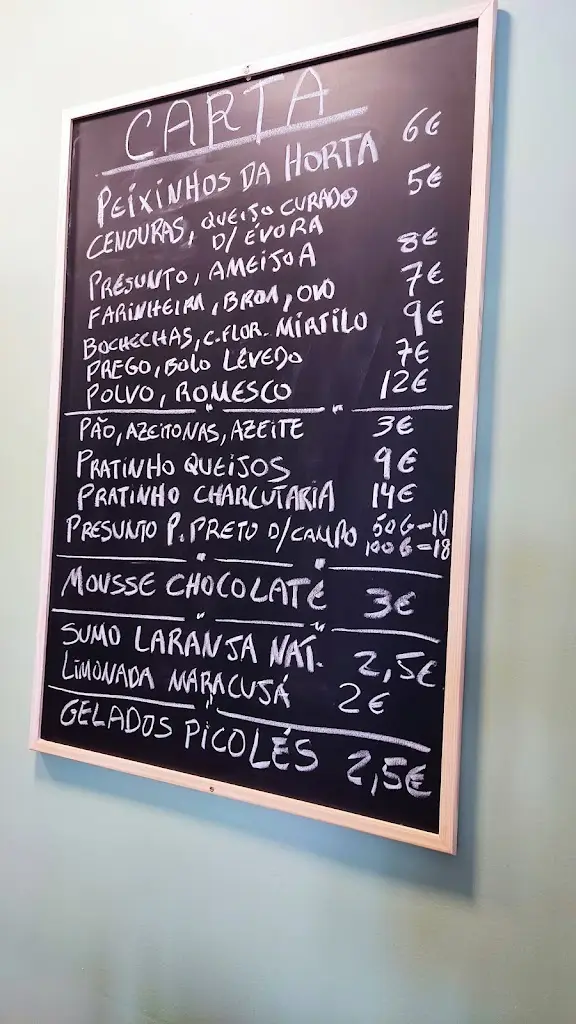 CARTA
PEIXINHOS DA HORTA 6€
CENOURAS, QUEIJO CURADO 5€
D/ ÉVORA
PRESUNTO, AMEIJOA 8€
FARINHEIRA, BROA, OVO 7€
BOCHECHAS, C.FLOR. MIRTILO 9€
PREGO, BOLO LÊVEDO 7€
POLVO, ROMESCO 12€
PÃO, AZEITONAS, AZEITE 3€
PRATINHO QUEIJOS 9€
PRATINHO CHARCUTARIA 14€
PRESUNTO P. PRETO D/CAMPO 50G-10
100G-18
MOUSSE CHOCOLATE 3€
SUMO LARANJA NAT. 2,5€
LIMONADA MARACUJÁ 2€
GELADOS PICOLÉS 2,5€